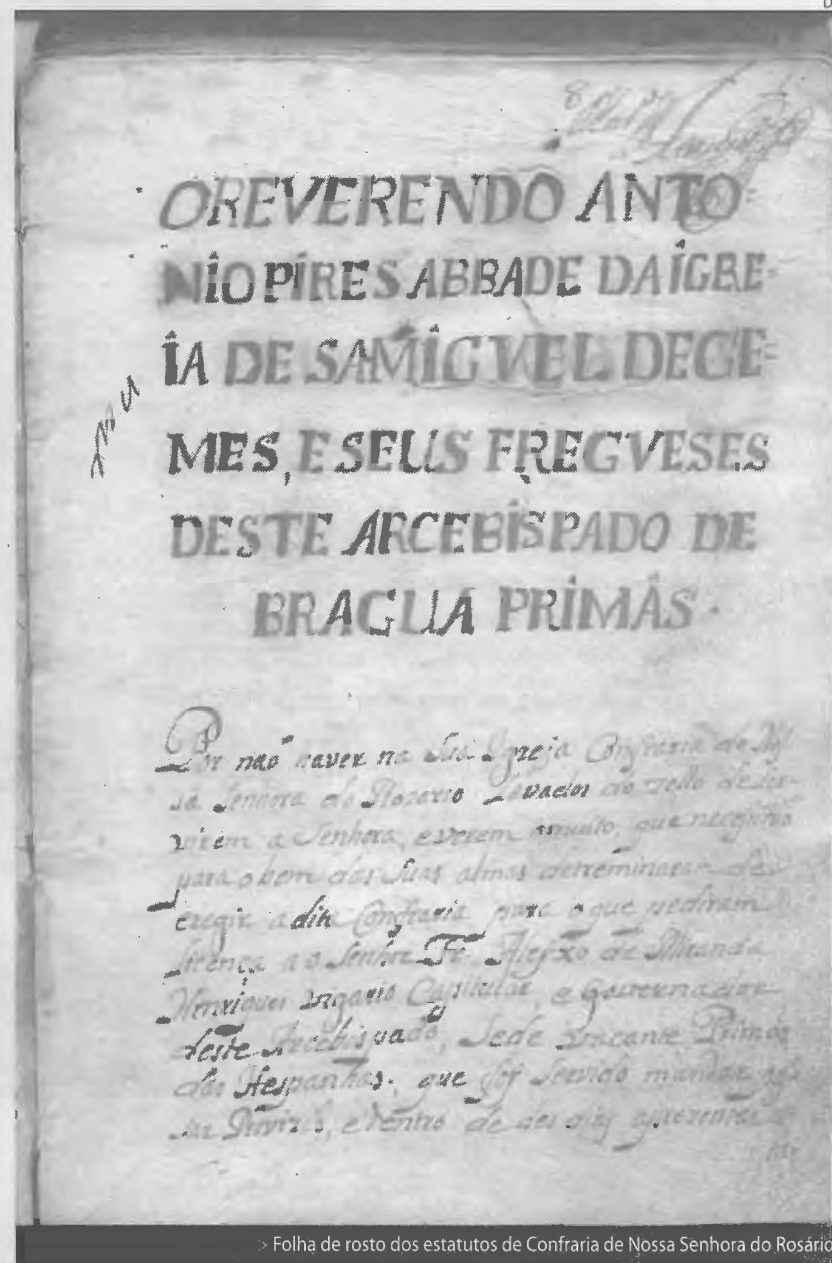 OREVERENDO ANTO=
NÍO PÍRES ABBADE DA ÍGRE=
ÎA DE SAMÍGVEL DE CE=
MES, E SEUS FREGVESES
DESTE ARCEBÍSPADO DE
BRAGUA PRÍMÁS.
Por não haver na Sua Igreja Confraria de
sa Senhora do Rosario Levados do zello de ser-
virem a Senhora, e verem muito, que necessitão
para o bem das Suas almas detreminaram de
eregir a dita Confraria para o que pediram
licença ao Senhor Fr. Aleyxo de Miranda
Henriques Vigario Capitular, e Governador
deste Arcebispado, Sede vacante Primás
das Hespanhas, que foy Servido mandar
e dentro de des dias
> Folha de rosto dos estatutos de Confraria de Nossa Senhora do Rosário